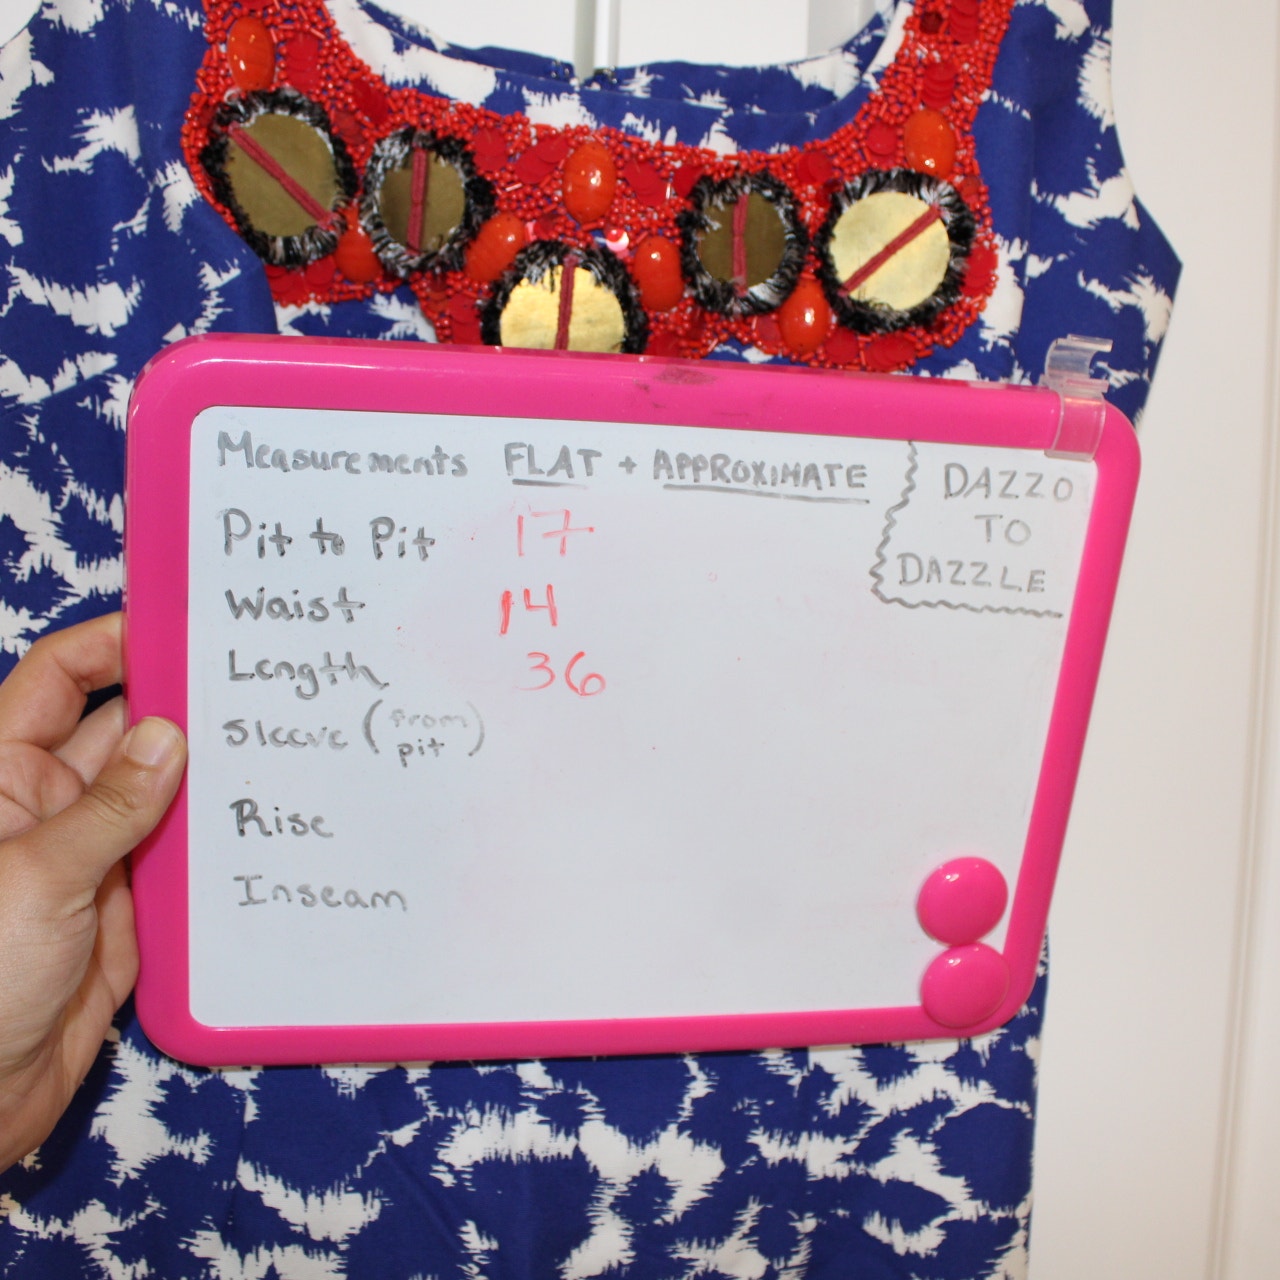 Measurements FLAT + APPROXIMATE
DAZZO
TO
DAZZLE
Pit to Pit 17
Waist 14
Length 36
Sleeve (from pit)
Rise
Inseam